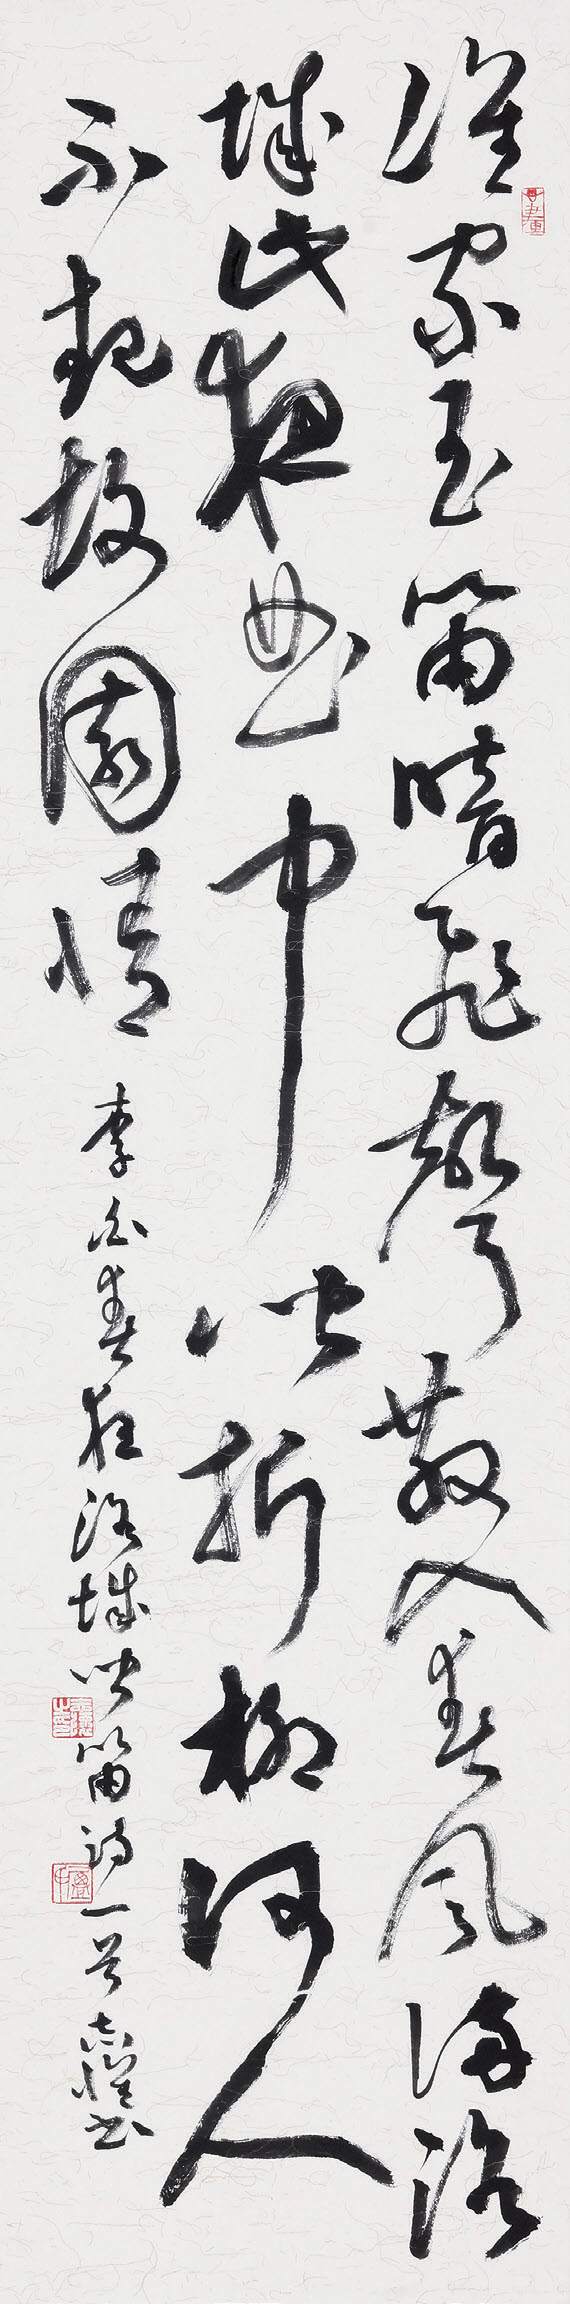 誰家玉笛暗飛聲散入春風滿洛
城此夜曲中聞折柳何人
不起故園情 李白春洛城聞笛詩一首 書